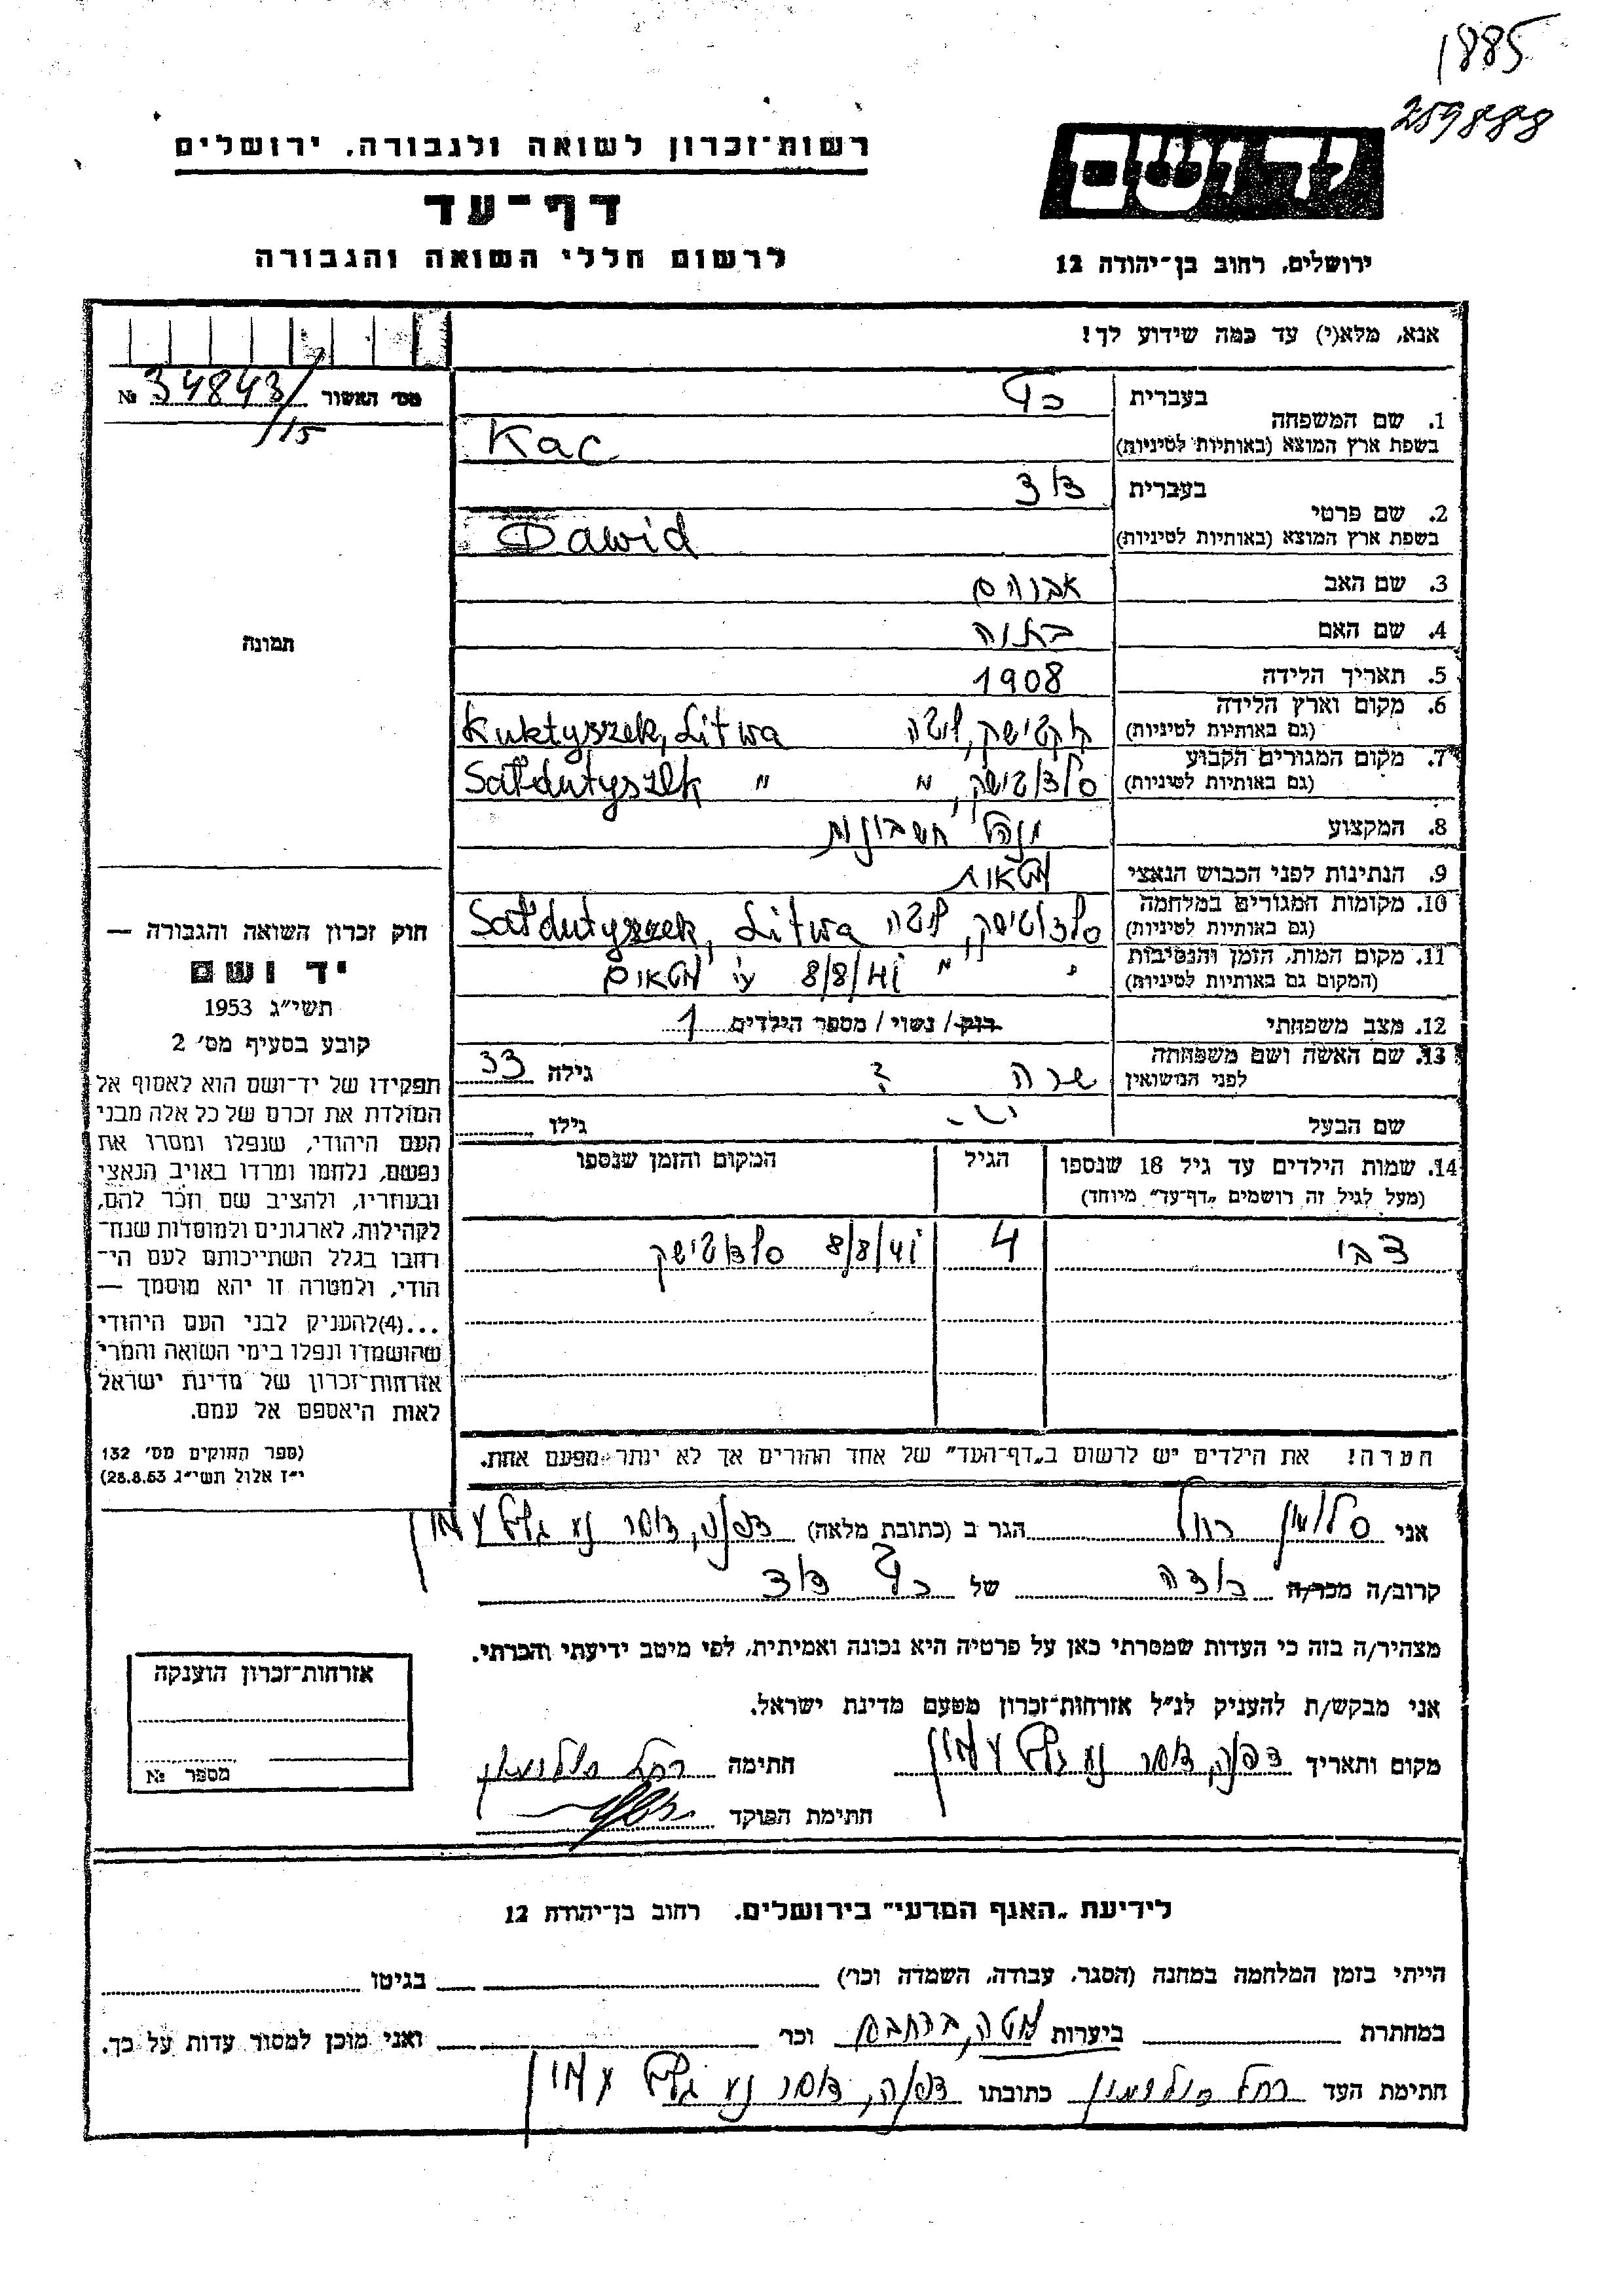 1885
259888
רשות־זכרון לשואה ולגבורה, ירושלים
דף־עד
לרשום חללי השואה והגבורה
יד ושם
ירושלים, רחוב בן־יהודה 12
אנא, מלא(י) עד כמה שידוע לך!
מס׳ האשור № 34843/15
1. שם המשפחה בעברית כץ
בשפת ארץ המוצא (באותיות לטיניות) Kac
2. שם פרטי בעברית דוד
בשפת ארץ המוצא (באותיות לטיניות) Dawid
3. שם האב אברהם
4. שם האם
5. תאריך הלידה 1908
6. מקום וארץ הלידה
(גם באותיות לטיניות) קוקטישק, ליטה Kuktyszek, Litwa
7. מקום המגורים הקבוע
(גם באותיות לטיניות) סלדוטישק, " " Sałdutyszek
8. המקצוע מנהל חשבונות
9. הנתינות לפני הכבוש הנאצי ליטאית
10. מקומות המגורים במלחמה
(גם באותיות לטיניות) סלדוטישק, ליטה Sałdutyszek, Litwa
11. מקום המות, הזמן והנסיבות
(המקום גם באותיות לטיניות) " " 8/8/41 ע״י ליטאים
12. מצב משפחתי רוק / נשוי / מספר הילדים 1
13. שם האשה ושם משפחתה
לפני הנשואין שרה ? גילה 33
שם הבעל גילו
14. שמות הילדים עד גיל 18 שנספו
(מעל לגיל זה רושמים „דף־עד" מיוחד)
הגיל
המקום והזמן שנספו
צבי 4 8/8/41 סלדוטישק
הערה! את הילדים יש לרשום ב„דף־העד" של אחד ההורים אך לא יותר מפעם אחת.
תמונה
חוק זכרון השואה והגבורה —
יד ושם
תשי״ג 1953
קובע בסעיף מס׳ 2
תפקידו של יד־ושם הוא לאסוף אל
המולדת את זכרם של כל אלה מבני
העם היהודי, שנפלו ומסרו את
נפשם, נלחמו ומרדו באויב הנאצי
ובעוזריו, ולהציב שם וזכר להם,
לקהילות, לארגונים ולמוסדות שנח־
רבו בגלל השתייכותם לעם הי־
הודי, ולמטרה זו יהא מוסמך —
...(4)להעניק לבני העם היהודי
שהושמדו ונפלו בימי השואה והמרי
אזרחות־זכרון של מדינת ישראל
לאות היאספם אל עמם.
(ספר החוקים מס׳ 132
י״ז אלול תשי״ג 28.8.53)
אני סלומון רחל הגר ב (כתובת מלאה) דפנה, ד.נ. גליל עליון
קרוב/ה מכר/ה בודה של כץ דוד
מצהיר/ה בזה כי העדות שמסרתי כאן על פרטיה היא נכונה ואמיתית, לפי מיטב ידיעתי והכרתי.
אני מבקש/ת להעניק לנ״ל אזרחות־זכרון מטעם מדינת ישראל.
מקום ותאריך דפנה, גליל עליון חתימה רחל סולומון
חתימת הפוקד
אזרחות־זכרון הוענקה
מספר №
לידיעת „האגף המדעי" בירושלים, רחוב בן־יהודה 12
הייתי בזמן המלחמה במחנה (הסגר, עבודה, השמדה וכו׳) בגיטו
במחתרת ביערות וכו׳ ואני מוכן למסור עדות על כך.
חתימת העד רחל סולומון כתובתו דפנה, גליל עליון